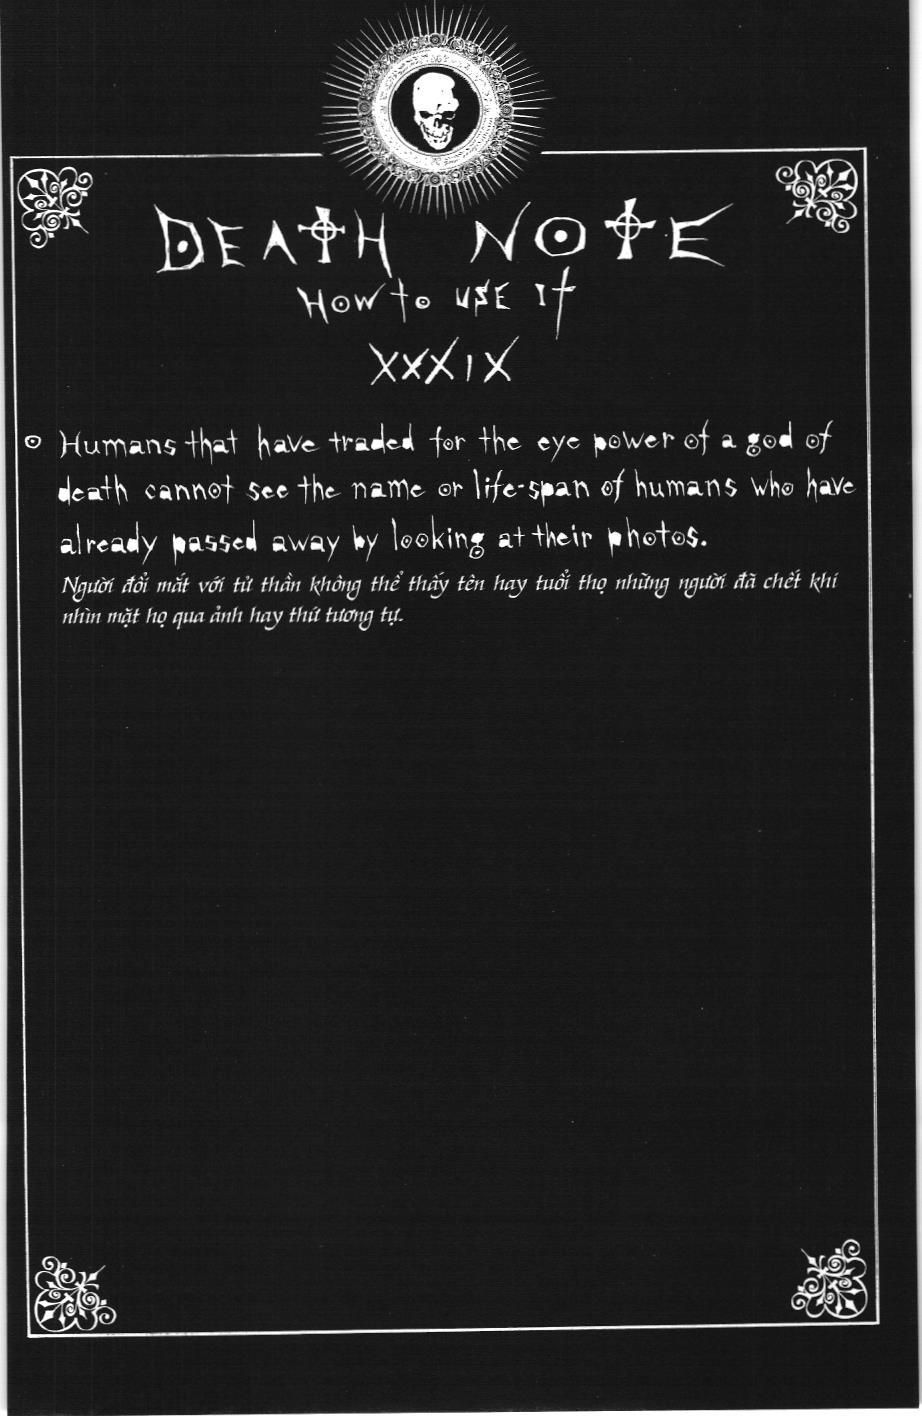 DEATH NOTE
How to USE It
XXXIX
Humans that have traded for the eye power of a god of
death cannot see the name or life-span of humans who have
already passed away by looking at their photos.
Người đổi mắt với tử thần không thể thấy tên hay tuổi thọ những người đã chết khi
nhìn mặt họ qua ảnh hay thứ tương tự.